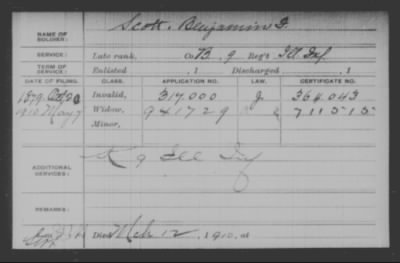 NAME OF SOLDIER: Scott, Benjamin F.
SERVICE: Late rank, Co. B, 9 Reg't Ill Inf
TERM OF SERVICE: Enlisted , 1 Discharged , 1
DATE OF FILING. CLASS. APPLICATION NO. LAW. CERTIFICATE NO.
1879 Oct 20 Invalid, 317,000 J. 364.043
1910 May 7 Widow, 941729 711515
Minor,
ADDITIONAL SERVICES: K 9 Ill Inf
REMARKS:
Died Mch 12, 1910, at